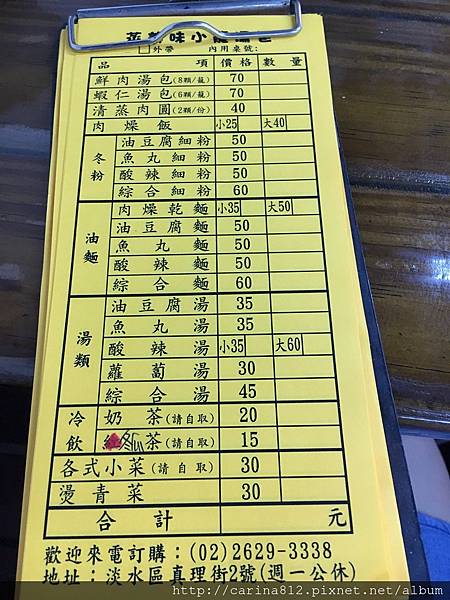 味小籠湯包
□外帶 內用桌號:
品 項 價格 數量
鮮肉湯包(8顆/籠) 70
蝦仁湯包(6顆/籠) 70
清蒸肉圓(2顆/份) 40
肉燥飯 小25 大40
冬粉
油豆腐細粉 50
魚丸細粉 50
酸辣細粉 50
綜合細粉 60
油麵
肉燥乾麵 小35 大50
油豆腐麵 50
魚丸麵 50
酸辣麵 50
綜合麵 60
湯類
油豆腐湯 35
魚丸湯 35
酸辣湯 小35 大60
蘿蔔湯 30
綜合湯 45
冷飲
奶茶(請自取) 20
冬瓜茶(請自取) 15
各式小菜(請自取) 30
燙青菜 30
合計 元
歡迎來電訂購:(02)2629-3338
地址:淡水區真理街2號(週一公休)
http://carina812.pixnet.net/album